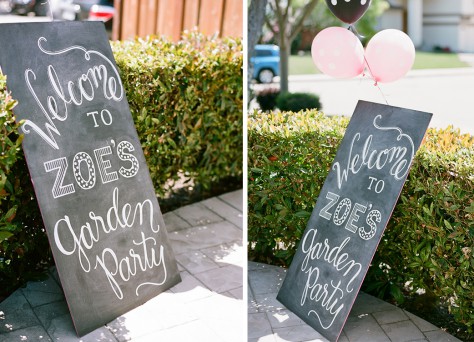 Welcome
TO
ZOE'S
garden
party
Welcome
TO
ZOE'S
garden
party